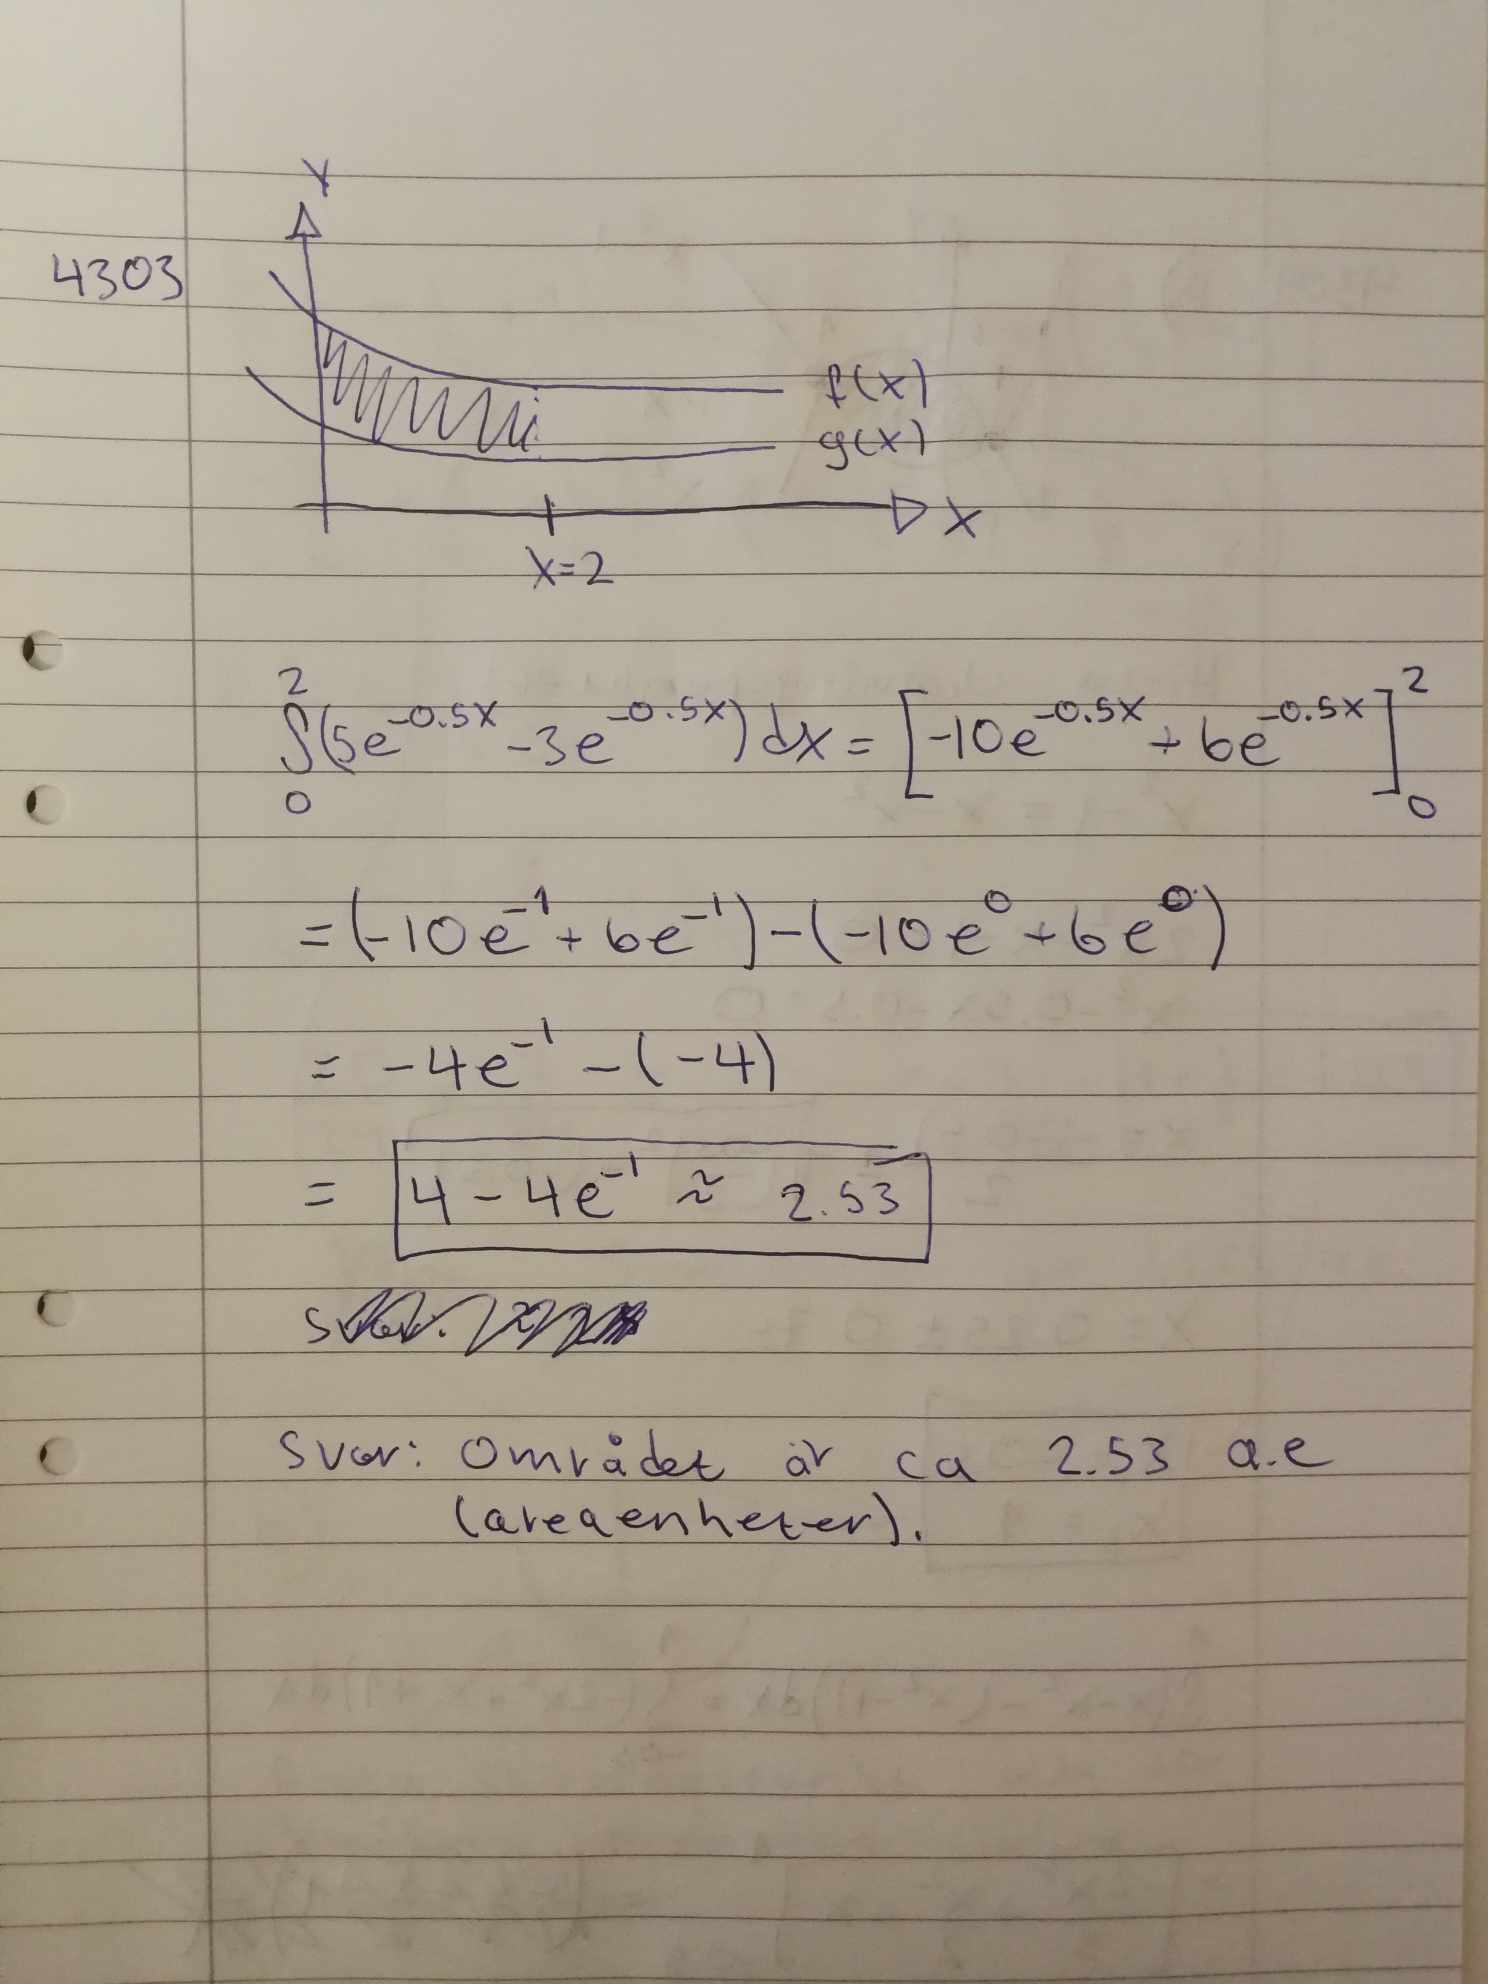 Y
4303
f(x)
g(x)
X
x=2
∫₀²(5e^{-0.5x} -3e^{-0.5x})dx = [-10e^{-0.5x} + 6e^{-0.5x}]₀²
=(-10e^{-1}+6e^{-1})-(-10e^{0}+6e^{0})
= -4e^{-1} -(-4)
= 4-4e^{-1} ≈ 2.53
Svar: Området är ca 2.53 a.e
(areaenheter).